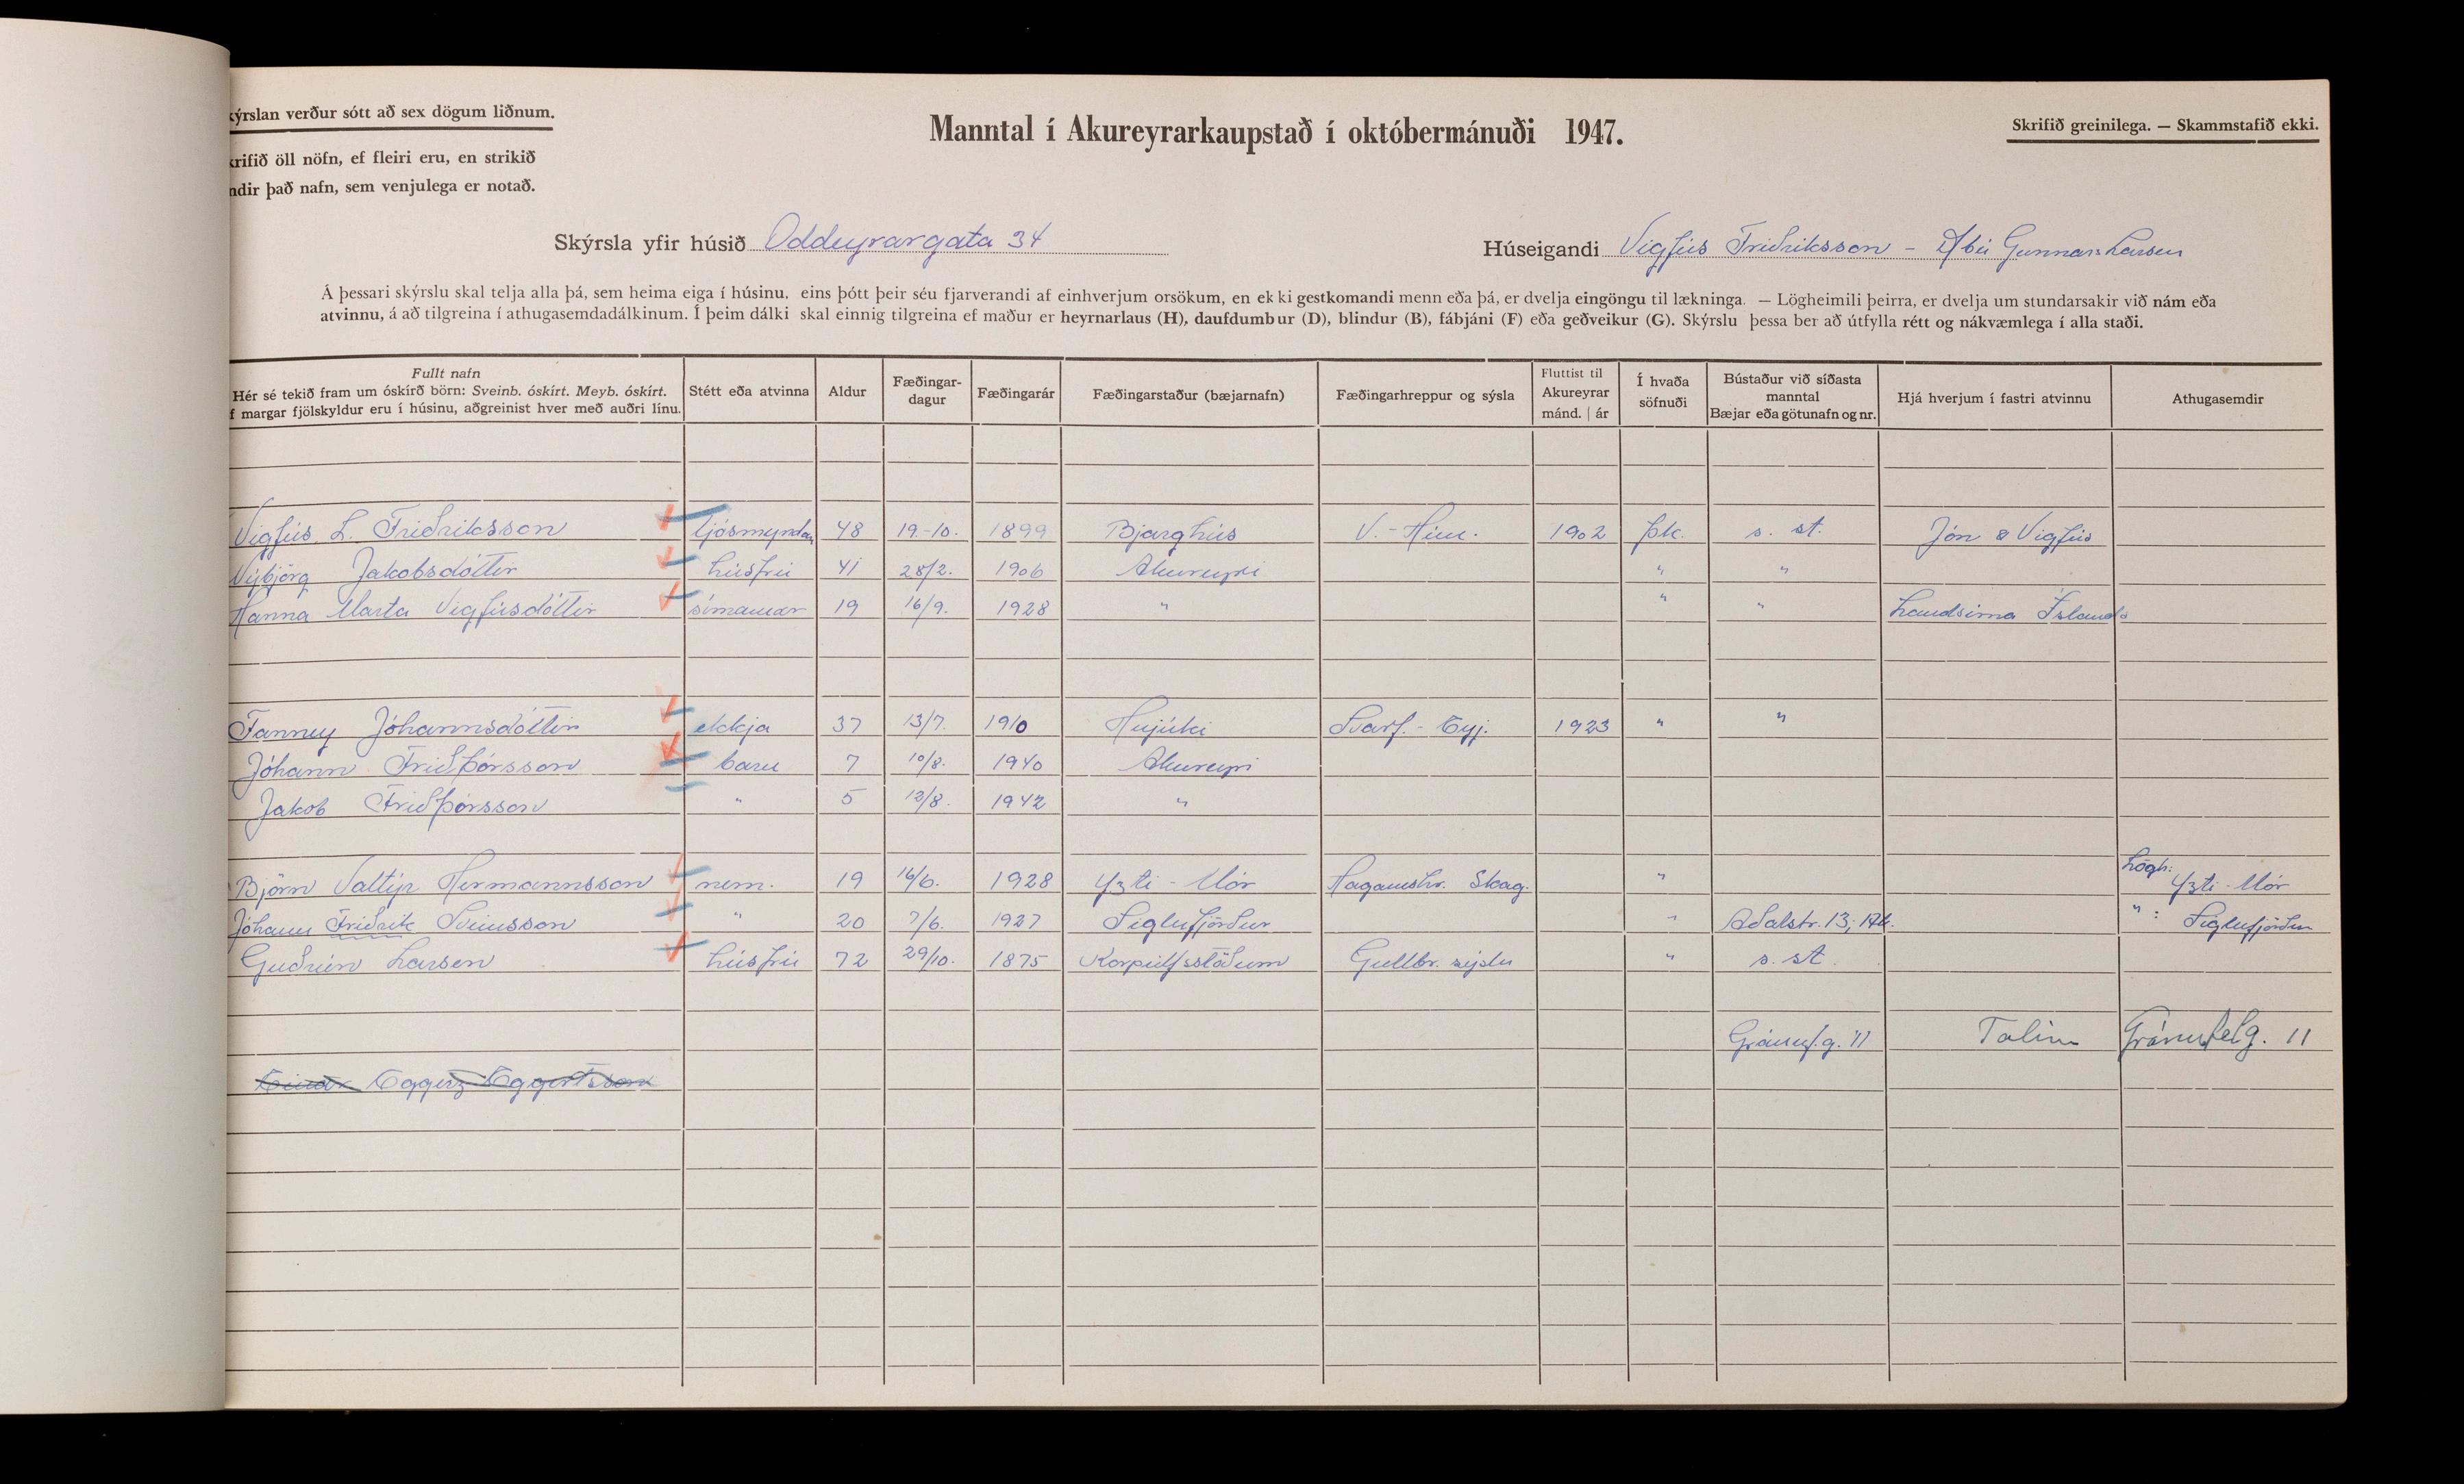 kýrslan verður sótt að sex dögum liðnum.
krifið öll nöfn, ef fleiri eru, en strikið
ndir það nafn, sem venjulega er notað.
Manntal í Akureyrarkaupstað í októbermánuði 1947.
Skrifið greinilega. — Skammstafið ekki.
Skýrsla yfir húsið Oddeyrargata 34
Húseigandi Vigfús Friðriksson - Dbú Gunnars Larsen
Á þessari skýrslu skal telja alla þá, sem heima eiga í húsinu, eins þótt þeir séu fjarverandi af einhverjum orsökum, en ekki gestkomandi menn eða þá, er dvelja eingöngu til lækninga. — Lögheimili þeirra, er dvelja um stundarsakir við nám eða
atvinnu, á að tilgreina í athugasemdadálkinum. Í þeim dálki skal einnig tilgreina ef maður er heyrnarlaus (H), daufdumbur (D), blindur (B), fábjáni (F) eða geðveikur (G). Skýrslu þessa ber að útfylla rétt og nákvæmlega í alla staði.
Fullt nafn
Hér sé tekið fram um óskírð börn: Sveinb. óskírt. Meyb. óskírt.
f margar fjölskyldur eru í húsinu, aðgreinist hver með auðri línu.
Stétt eða atvinna
Aldur
Fæðingar-
dagur
Fæðingarár
Fæðingarstaður (bæjarnafn)
Fæðingarhreppur og sýsla
Fluttist til
Akureyrar
mánd. | ár
Í hvaða
söfnuði
Bústaður við síðasta
manntal
Bæjar eða götunafn og nr.
Hjá hverjum í fastri atvinnu
Athugasemdir
Vigfús L. Friðriksson ljósmyndari 48 19-10. 1899 Bjarghús V.-Hún. 1902 þk. s. st. Jón & Vigfús
Nýbjörg Jakobsdóttir húsfrú 41 28/2. 1906 Akureyri " "
Hanna Marta Vigfúsdóttir símamær 19 16/9. 1928 " " " Landsíma Íslands
Fanney Jóhannsdóttir ekkja 37 13/7. 1910 Svarf. - Eyj. 1923 " "
Jóhann Friðþórsson barn 7 10/8. 1940 Akureyri
Jakob Friðþórsson " 5 12/8. 1942 "
Björn Valtýr Hermannsson nem. 19 16/6. 1928 Yzti-Mór Haganeshr. Skag. " Lögh: Yzti-Mór
Jóhann Friðrik Sveinsson " 20 7/6. 1927 Siglufjörður " Aðalstr. 13, Ak. " : Siglufjörður
Guðrún Larsen húsfrú 72 29/10. 1875 Korpúlfsstöðum Gullbr. sýslu " s. st.
Gránuf.g. 11 Talinn Gránufélg. 11
Einar Eggerz Eggertsson